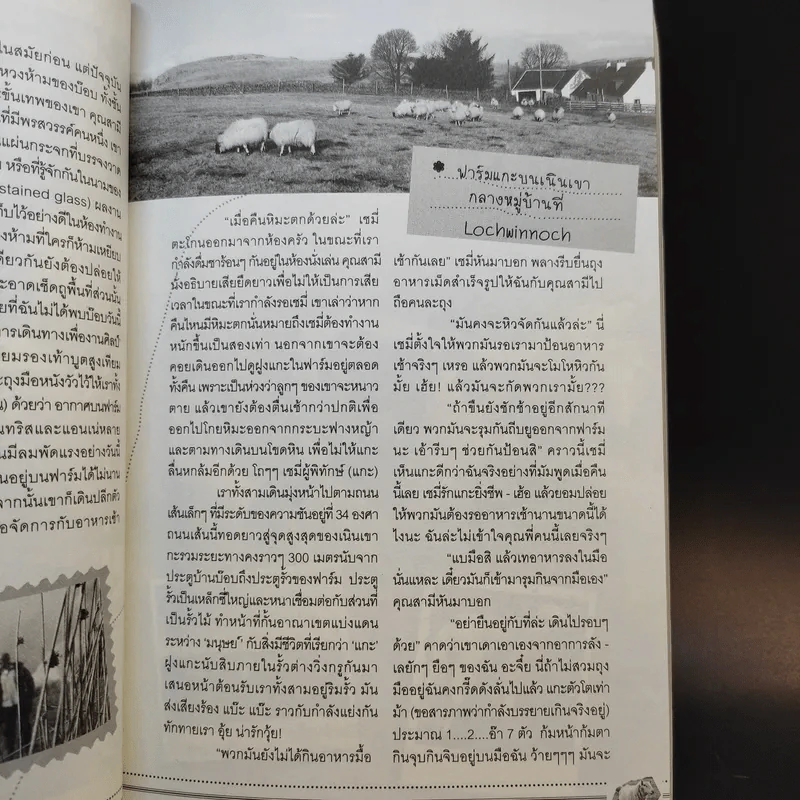 ในสมัยก่อน แต่ปัจจุบัน
หวงห้ามของบ๊อบ ทั้งชั้น
ขั้นเทพของเขา คุณสามี
ที่มีพรสวรรค์คนหนึ่ง เขา
แผ่นกระจกที่บรรจงวาด
หรือที่รู้จักกันในนามของ
stained glass) ผลงาน
ก็บไว้อย่างดีในห้องทำงาน
งห้ามที่ใครก็ห้ามเหยียบ
ดียวกันยังต้องปล่อยให้
ะอาดเช็ดถูพื้นที่ส่วนนั้น
ยที่ฉันไม่ได้พบบ๊อบวันนี้
การเดินทางเพื่องานศิลป์
ยมรองเท้าบูตสูงเทียม
ะถุงมือหนังวัวไว้ให้เราทั้ง
น) ด้วยว่า อากาศบนฟาร์ม
นทริสและแอนเน่หลาย
นมีลมพัดแรงอย่างวันนี้
นอยู่บนฟาร์มได้ไม่นาน
จากนั้นเขาก็เดินปลีกตัว
อจัดการกับอาหารเช้า
ฟาร์มแกะบนเนินเขา
กลางหมู่บ้านที่
Lochwinnoch
“เมื่อคืนหิมะตกด้วยล่ะ” เชมี่
ตะโกนออกมาจากห้องครัว ในขณะที่เรา
กำลังดื่มชาร้อนๆ กันอยู่ในห้องนั่งเล่น คุณสามี
นั่งอธิบายเสียยืดยาวเพื่อไม่ให้เป็นการเสีย
เวลาในขณะที่เรากำลังรอเชมี่ เขาเล่าว่าหาก
คืนไหนมีหิมะตกนั่นหมายถึงเชมี่ต้องทำงาน
หนักขึ้นเป็นสองเท่า นอกจากเขาจะต้อง
คอยเดินออกไปดูฝูงแกะในฟาร์มอยู่ตลอด
ทั้งคืน เพราะเป็นห่วงว่าลูกๆ ของเขาจะหนาว
ตาย แล้วเขายังต้องตื่นเช้ากว่าปกติเพื่อ
ออกไปโกยหิมะออกจากกระบะฟางหญ้า
และตามทางเดินบนโขดหิน เพื่อไม่ให้แกะ
ลื่นหกล้มอีกด้วย โถๆๆ เชมี่ผู้พิทักษ์ (แกะ)
เราทั้งสามเดินมุ่งหน้าไปตามถนน
เส้นเล็กๆ ที่มีระดับของความชันอยู่ที่ 34 องศา
ถนนเส้นนี้ทอดยาวสู่จุดสูงสุดของเนินเขา
กะรวมระยะทางคงราวๆ 300 เมตรนับจาก
ประตูบ้านบ๊อบถึงประตูรั้วของฟาร์ม ประตู
รั้วเป็นเหล็กซี่ใหญ่และหนาเชื่อมต่อกับส่วนที่
เป็นรั้วไม้ ทำหน้าที่กั้นอาณาเขตแบ่งแดน
ระหว่าง ‘มนุษย์’ กับสิ่งมีชีวิตที่เรียกว่า ‘แกะ’
ฝูงแกะนับสิบภายในรั้วต่างวิ่งกรูกันมา
เสนอหน้าต้อนรับเราทั้งสามอยู่ริมรั้ว มัน
ส่งเสียงร้อง แบ๊ะ แบ๊ะ ราวกับกำลังแย่งกัน
ทักทายเรา อุ้ย น่ารักวุ้ย!
“พวกมันยังไม่ได้กินอาหารมื้อ
เช้ากันเลย” เชมี่หันมาบอก พลางรีบยื่นถุง
อาหารเม็ดสำเร็จรูปให้ฉันกับคุณสามีไป
ถือคนละถุง
“มันคงจะหิวจัดกันแล้วล่ะ” นี่
เชมี่ตั้งใจให้พวกมันรอเรามาป้อนอาหาร
เช้าจริงๆ เหรอ แล้วพวกมันจะโมโหหิวกัน
มั้ย เฮ้ย! แล้วมันจะกัดพวกเรามั้ย???
“ถ้าขืนยังชักช้าอยู่อีกสักนาที
เดียว พวกมันจะรุมกันถีบยูออกจากฟาร์ม
นะ เอ้ารีบๆ ช่วยกันป้อนสิ” คราวนี้เชมี่
เห็นแกะดีกว่าฉันจริงอย่างที่มัมพูดเมื่อคืน
นี้เลย เชมี่รักแกะยิ่งชีพ - เฮ้อ แล้วยอมปล่อย
ให้พวกมันต้องรออาหารเช้านานขนาดนี้ได้
ไงนะ ฉันล่ะไม่เข้าใจคุณพี่คนนี้เลยจริงๆ
“แบมือสิ แล้วเทอาหารลงในมือ
นั่นแหละ เดี๋ยวมันก็เข้ามารุมกินจากมือเอง”
คุณสามีหันมาบอก
“อย่ายืนอยู่กับที่ล่ะ เดินไปรอบๆ
ด้วย” คาดว่าเขาเดาเอาเองจากอาการลัง -
เลยักๆ ยือๆ ของฉัน อะจึ๋ย นี่ถ้าไม่สวมถุง
มืออยู่ฉันคงกรี๊ดดังลั่นไปแล้ว แกะตัวโตเท่า
ม้า (ขอสารภาพว่ากำลังบรรยายเกินจริงอยู่)
ประมาณ 1....2....อ๊า 7 ตัว ก้มหน้าก้มตา
กินจุบกินจิบอยู่บนมือฉัน ว้ายๆๆๆ มันจะ